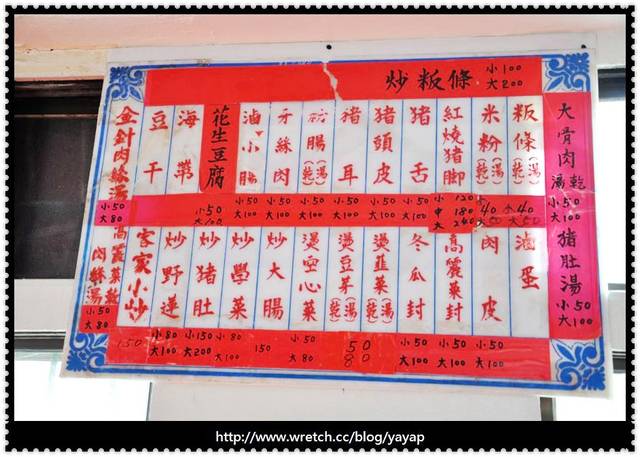 炒粄條 小100 大200
大骨肉 湯乾 小50 大100
豬肚湯 小50 大100
粄條(乾)(湯) 小40 大50
米粉(乾)(湯) 40 50
紅燒豬脚 小120 中180 大240
豬舌 小50 大100
豬頭皮 小50 大100
豬耳 小50 大100
粉腸 (乾)(湯) 小50 大100
牙絲肉 小50 大100
滷小腸 小50 大100
花生豆腐 小50 大100
海帶
豆干
金針肉絲湯 小50 大80
滷蛋
肉皮 小50 大100
高麗菜封 小50 大100
冬瓜封 小50 大100
燙韮菜(乾)(湯)
燙豆芽(乾)(湯) 50 80
燙空心菜 小50 大80
炒大腸 150
炒學菜 小50 大100
炒豬肚 小150 大200
炒野蓮 小80 大100
客家小炒 150
高麗菜乾肉絲湯 小50 大80
http://www.wretch.cc/blog/yayap